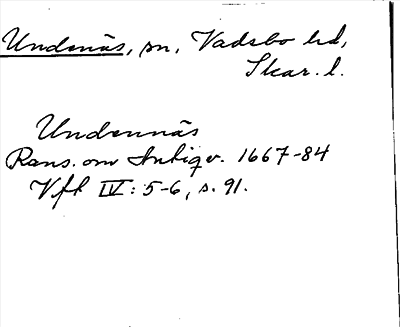 Undenäs, sn, Vadsbo hd,
Skar. l.
Undennäs
Rans. om Antiqv. 1667-84
Vfl IV: 5-6, s. 91.